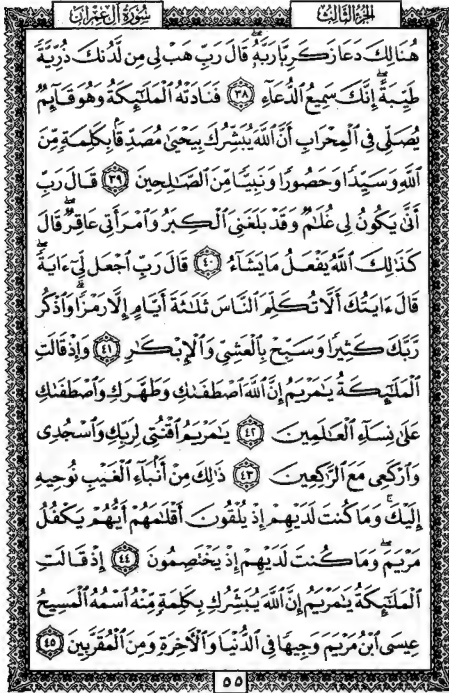 الجزء الثالث
سورة آل عمران
هُنَالِكَ دَعَا زَكَرِيَّا رَبَّهُۥ قَالَ رَبِّ هَبْ لِى مِن لَّدُنكَ ذُرِّيَّةً
طَيِّبَةً إِنَّكَ سَمِيعُ الدُّعَآءِ ٣٨ فَنَادَتْهُ الْمَلَٰٓئِكَةُ وَهُوَ قَآئِمٌ
يُصَلِّى فِى الْمِحْرَابِ أَنَّ اللَّهَ يُبَشِّرُكَ بِيَحْيَىٰ مُصَدِّقًۢا بِكَلِمَةٍ مِّنَ
اللَّهِ وَسَيِّدًا وَحَصُورًا وَنَبِيًّا مِّنَ الصَّٰلِحِينَ ٣٩ قَالَ رَبِّ
أَنَّىٰ يَكُونُ لِى غُلَٰمٌ وَقَدْ بَلَغَنِىَ الْكِبَرُ وَامْرَأَتِى عَاقِرٌ قَالَ
كَذَٰلِكَ اللَّهُ يَفْعَلُ مَا يَشَآءُ ٤٠ قَالَ رَبِّ اجْعَل لِّىٓ ءَايَةً
قَالَ ءَايَتُكَ أَلَّا تُكَلِّمَ النَّاسَ ثَلَٰثَةَ أَيَّامٍ إِلَّا رَمْزًا وَاذْكُر
رَّبَّكَ كَثِيرًا وَسَبِّحْ بِالْعَشِىِّ وَالْإِبْكَٰرِ ٤١ وَإِذْ قَالَتِ
الْمَلَٰٓئِكَةُ يَٰمَرْيَمُ إِنَّ اللَّهَ اصْطَفَىٰكِ وَطَهَّرَكِ وَاصْطَفَىٰكِ
عَلَىٰ نِسَآءِ الْعَٰلَمِينَ ٤٢ يَٰمَرْيَمُ اقْنُتِى لِرَبِّكِ وَاسْجُدِى
وَارْكَعِى مَعَ الرَّٰكِعِينَ ٤٣ ذَٰلِكَ مِنْ أَنۢبَآءِ الْغَيْبِ نُوحِيهِ
إِلَيْكَ وَمَا كُنتَ لَدَيْهِمْ إِذْ يُلْقُونَ أَقْلَٰمَهُمْ أَيُّهُمْ يَكْفُلُ
مَرْيَمَ وَمَا كُنتَ لَدَيْهِمْ إِذْ يَخْتَصِمُونَ ٤٤ إِذْ قَالَتِ
الْمَلَٰٓئِكَةُ يَٰمَرْيَمُ إِنَّ اللَّهَ يُبَشِّرُكِ بِكَلِمَةٍ مِّنْهُ اسْمُهُ الْمَسِيحُ
عِيسَى ابْنُ مَرْيَمَ وَجِيهًا فِى الدُّنْيَا وَالْءَاخِرَةِ وَمِنَ الْمُقَرَّبِينَ ٤٥
٥٥